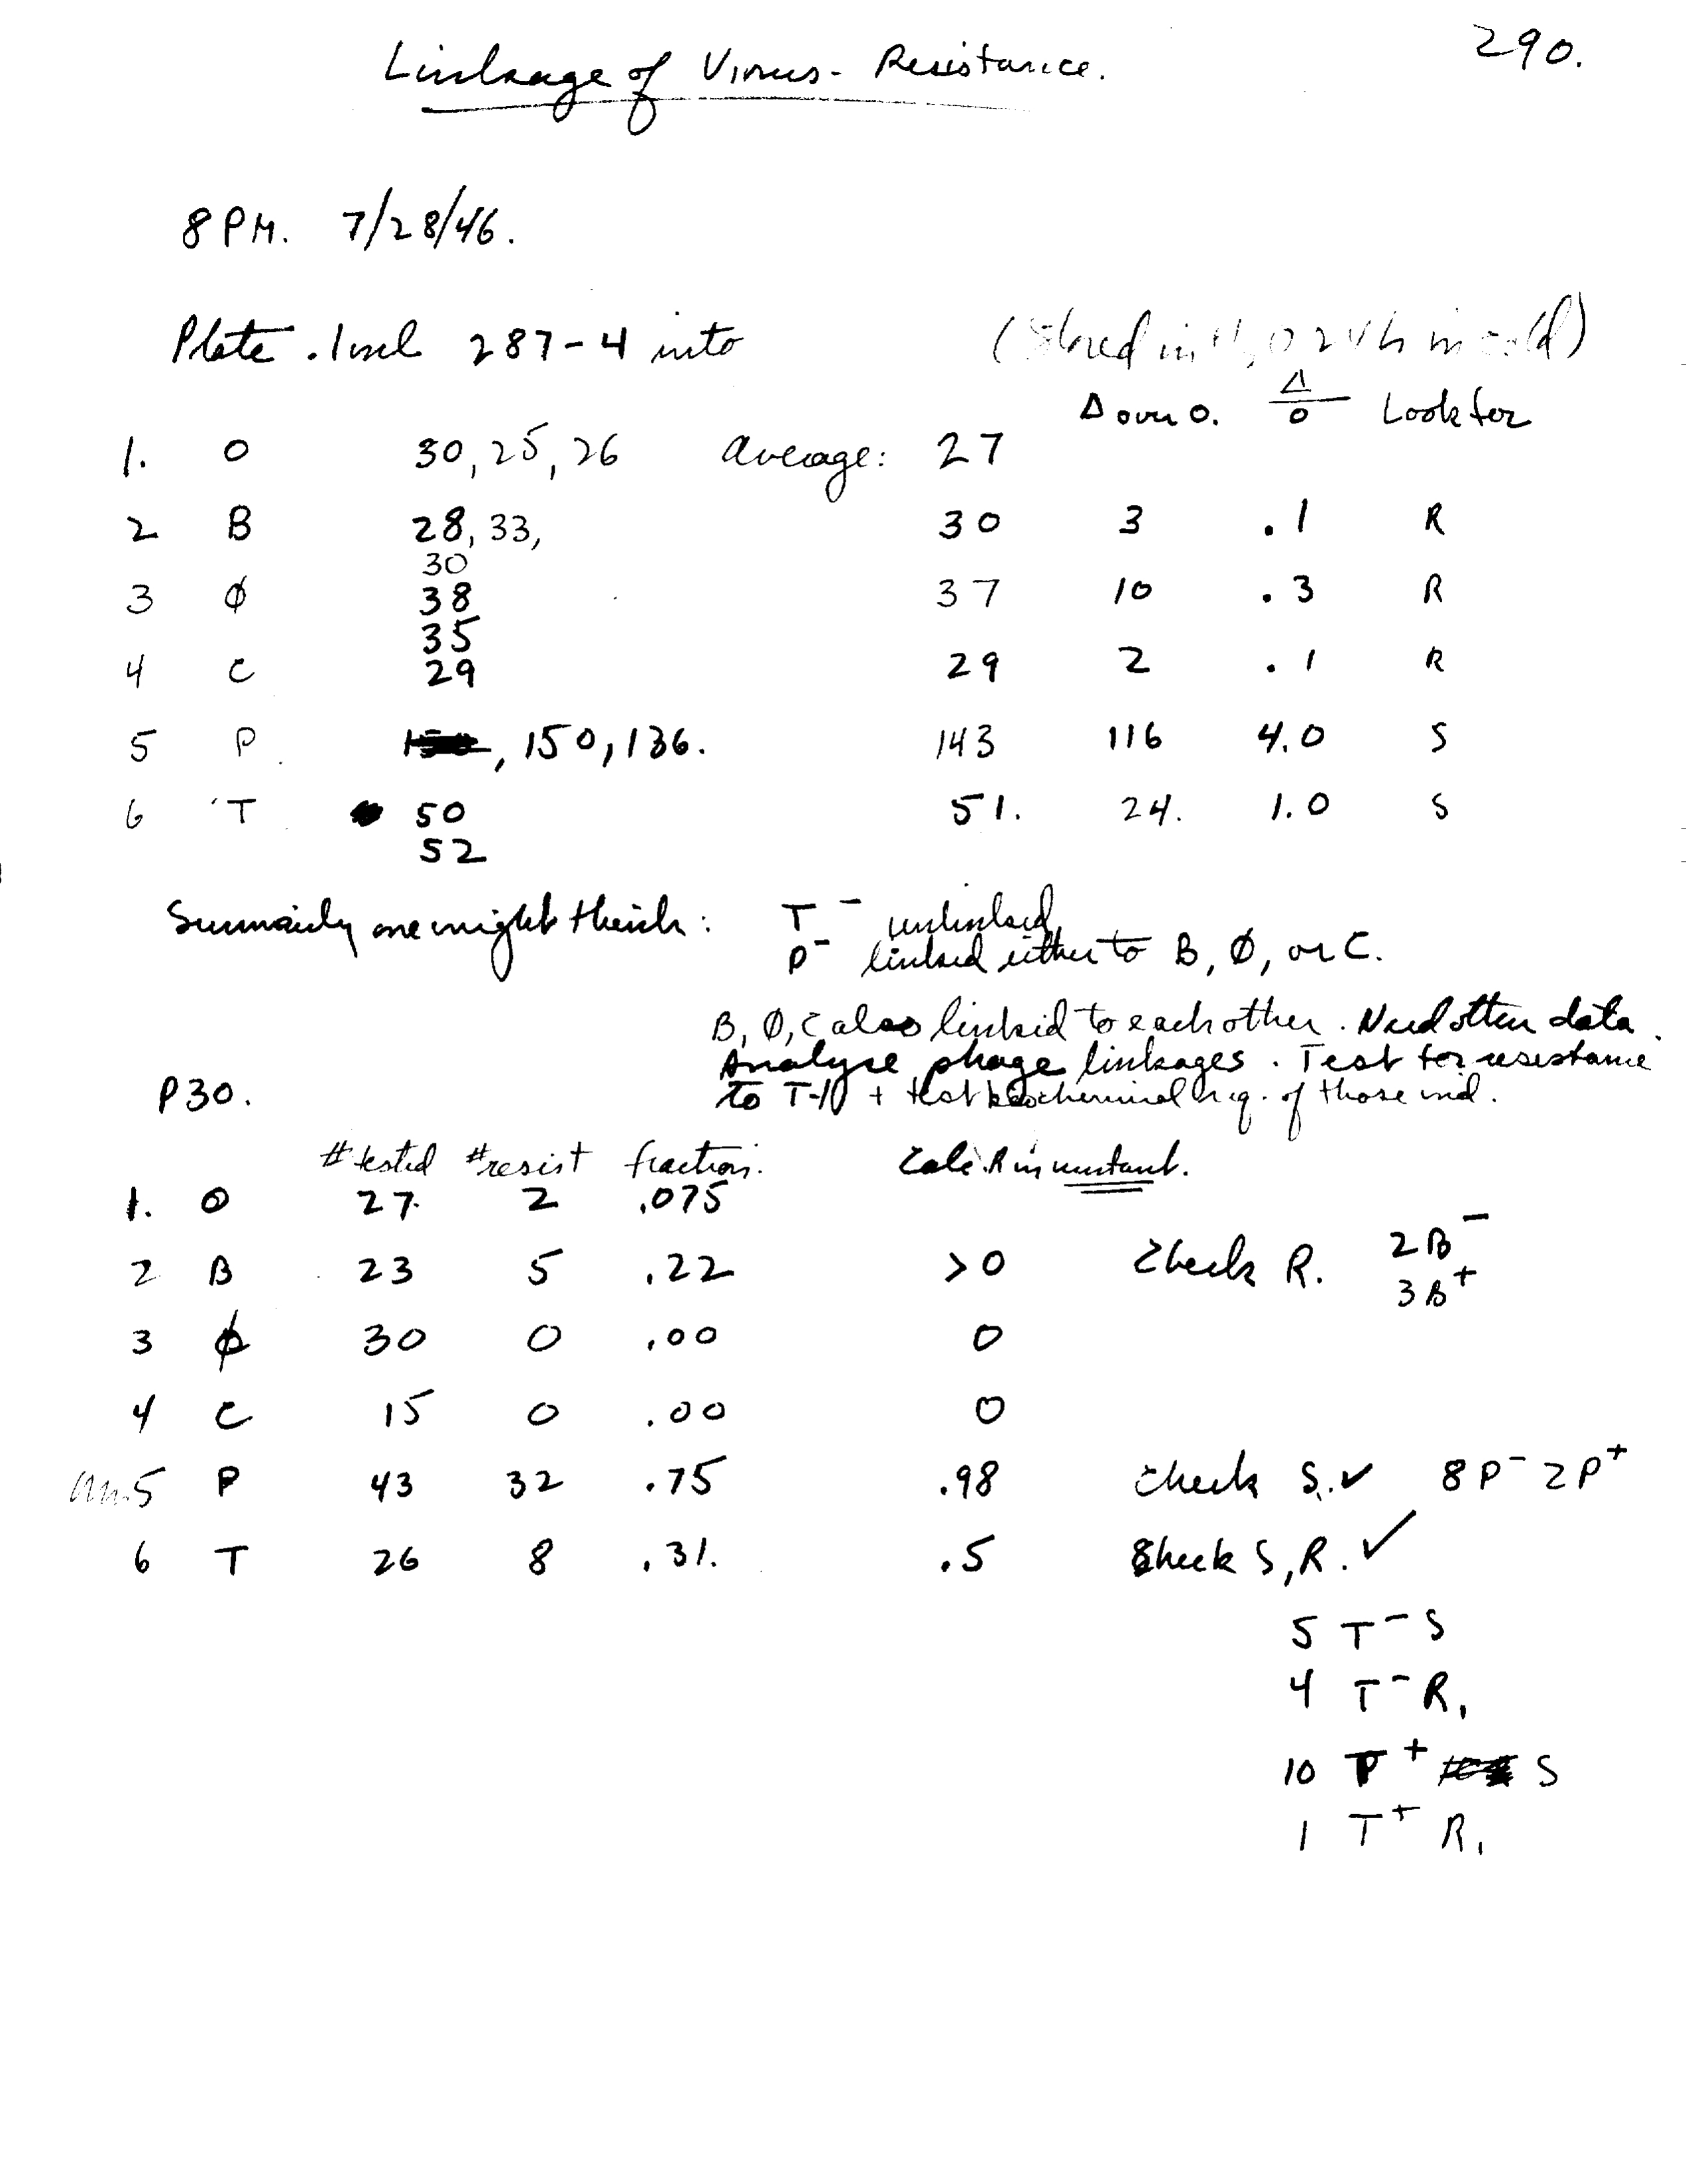 290.
Linkage of Virus-Resistance.
8 PM. 7/28/46.
Plate .1ml 287-4 into (Stored in H2O 24h in cold)
Δ over 0. Δ/0 Look for
1. O 30, 25, 26 average: 27
2 B 28, 33, 30 3 .1 R
30
3 ϕ 38 37 10 .3 R
35
4 C 29 29 2 .1 R
5 P , 150, 136. 143 116 4.0 S
6 T 50 51. 24. 1.0 S
52
Summarily one might think: T⁻ unlinked
P⁻ linked either to B, ϕ, or C.
B, ϕ, C also linked to each other. Need other data.
Analyse phage linkages. Test for resistance
to T-1 + test biochemical req. of those ind.
P30.
# tested # resist fraction. Calc. R in mutant.
1. O 27. 2 .075
2 B 23 5 .22 >0 Check R. 2B⁻
3B⁺
3 ϕ 30 0 .00 0
4 C 15 0 .00 0
5 P 43 32 .75 .98 Check S. ✓ 8P⁻ 2P⁺
6 T 26 8 .31. .5 Check S, R. ✓
5 T⁻ S
4 T⁻ R₁
10 T⁺ S
1 T⁺ R₁